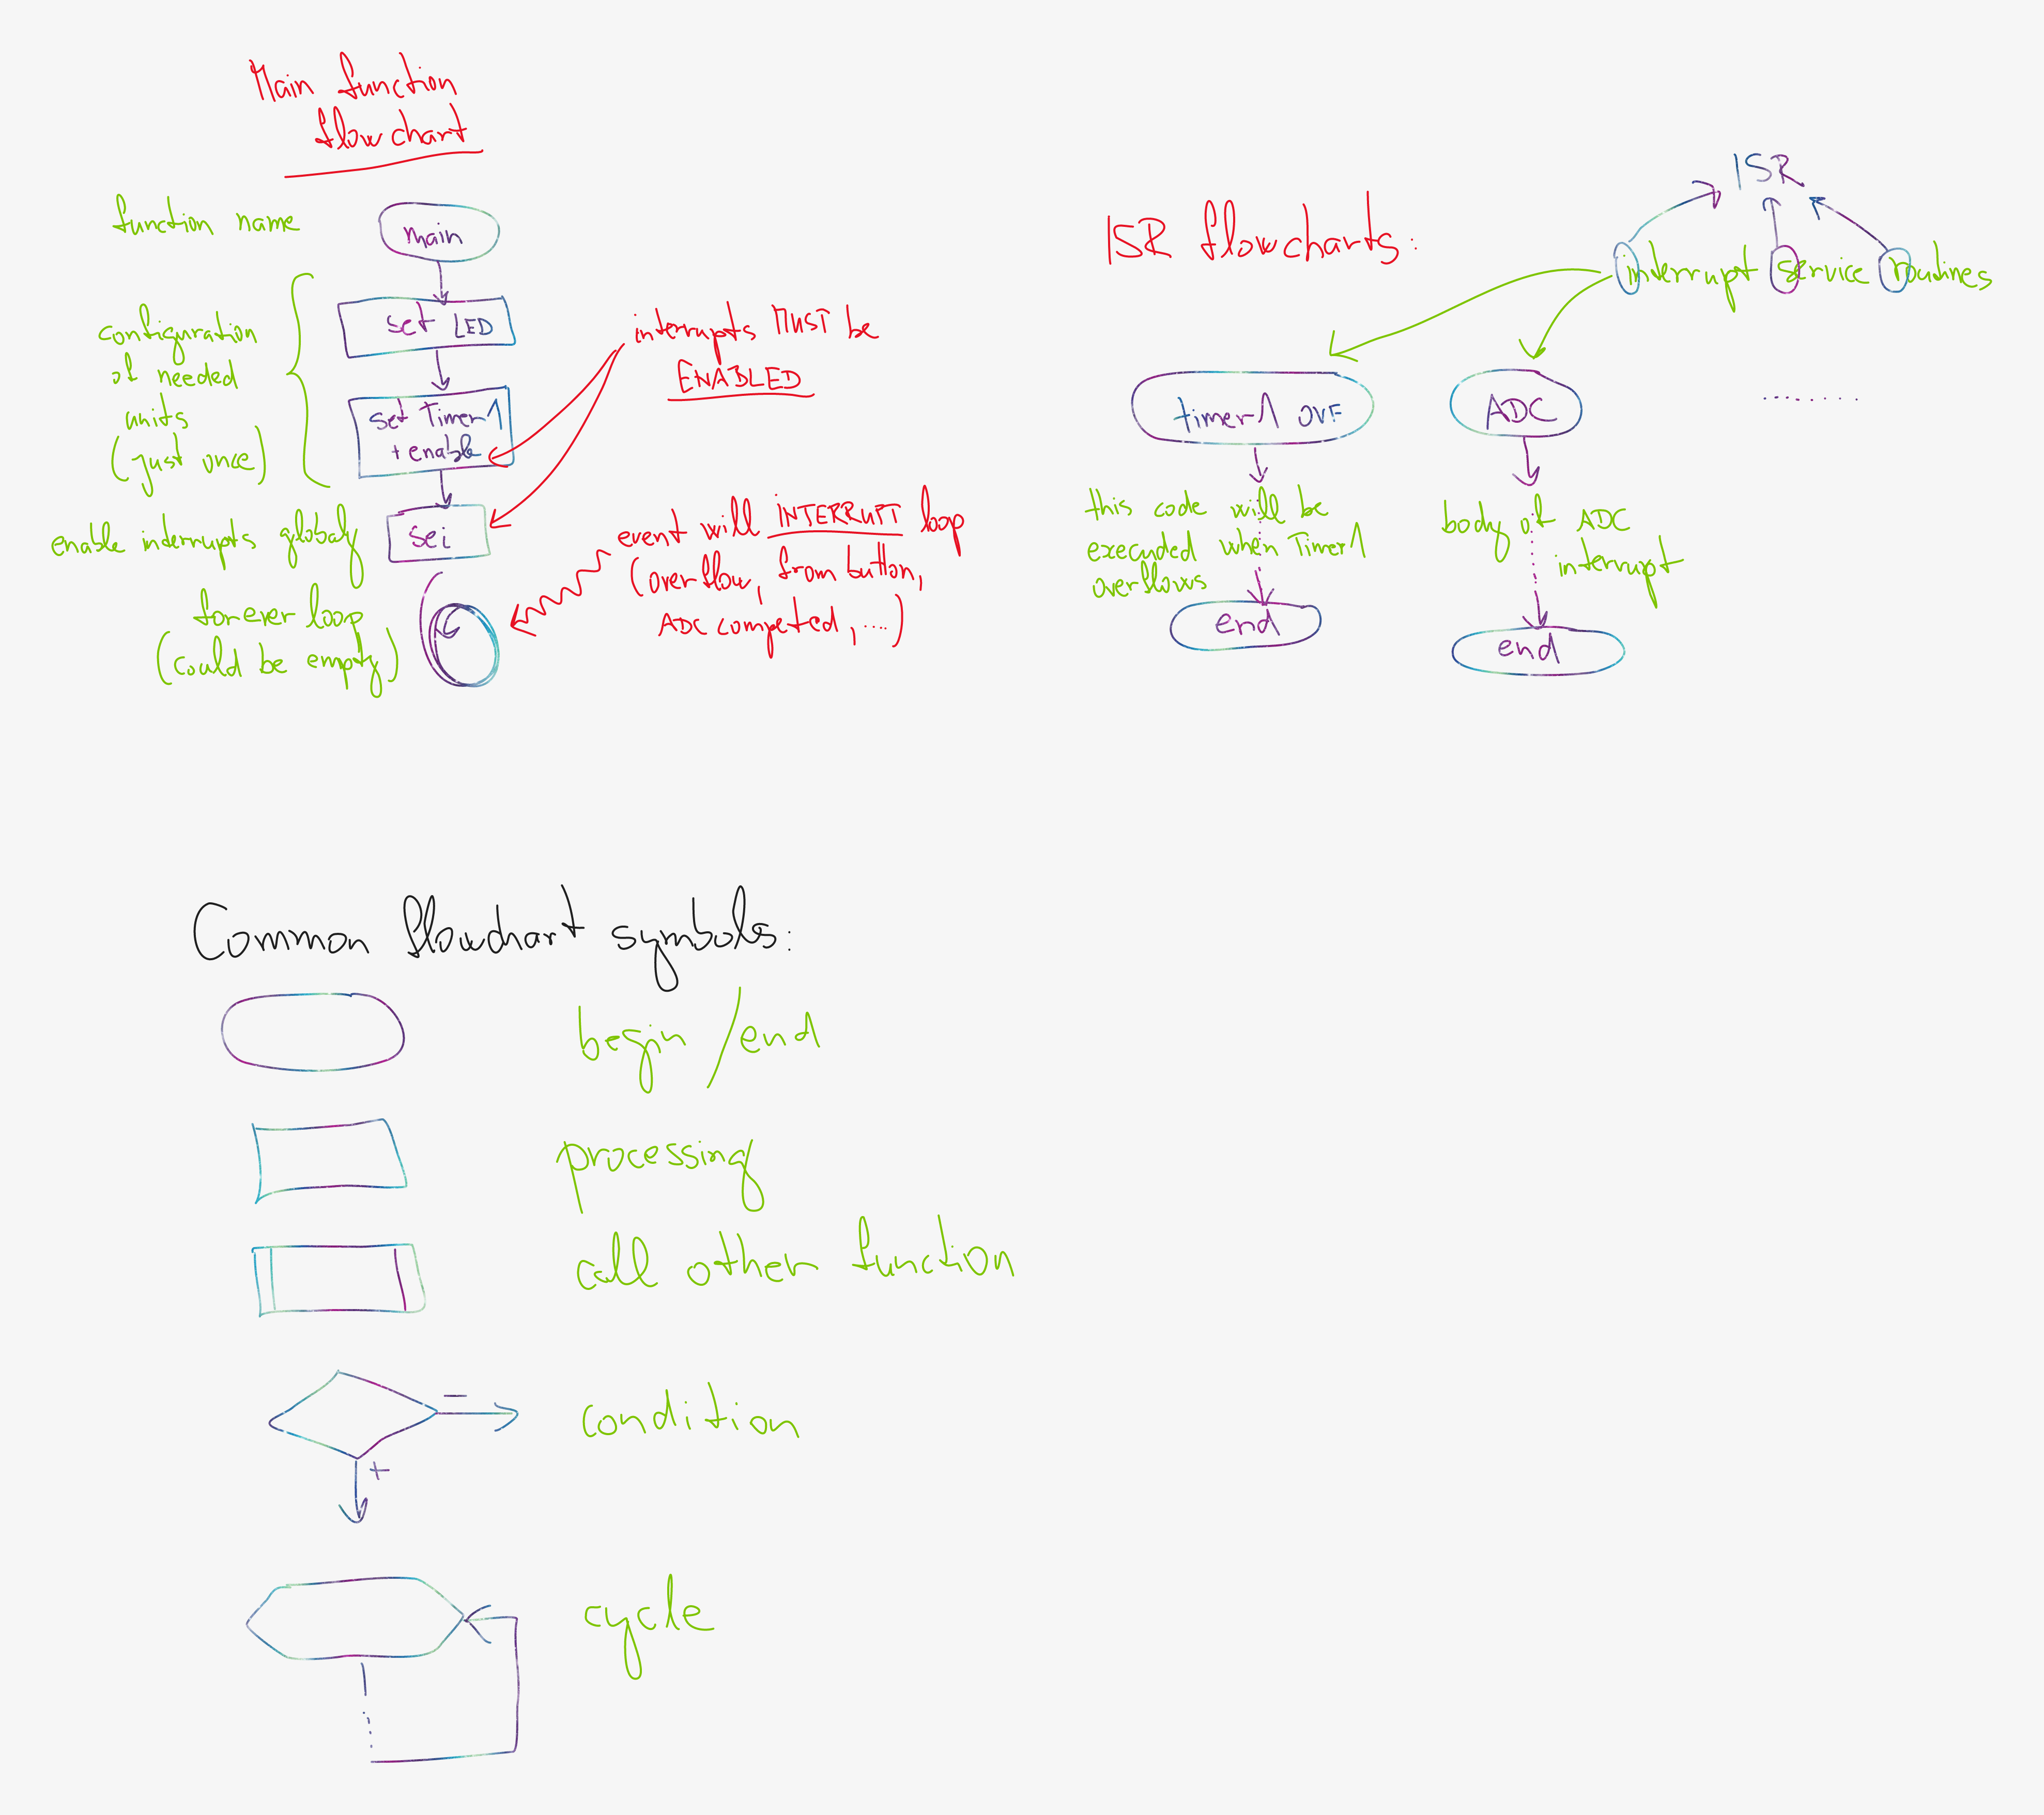 Main function
flowchart
function name
main
configuration
of needed
units
(just once)
set LED
set Timer1
+ enable
interrupts MUST be
ENABLED
enable interrupts globaly
sei
forever loop
(could be empty)
event will INTERRUPT loop
(overflow, from button,
ADC competed, ....)
ISR flowcharts:
ISR
interrupt service routines
timer1 OVF
this code will be
executed when Timer1
overflows
end
ADC
body of ADC
interrupt
end
........
Common flowchart symbols:
begin / end
processing
call other function
−
+
condition
cycle